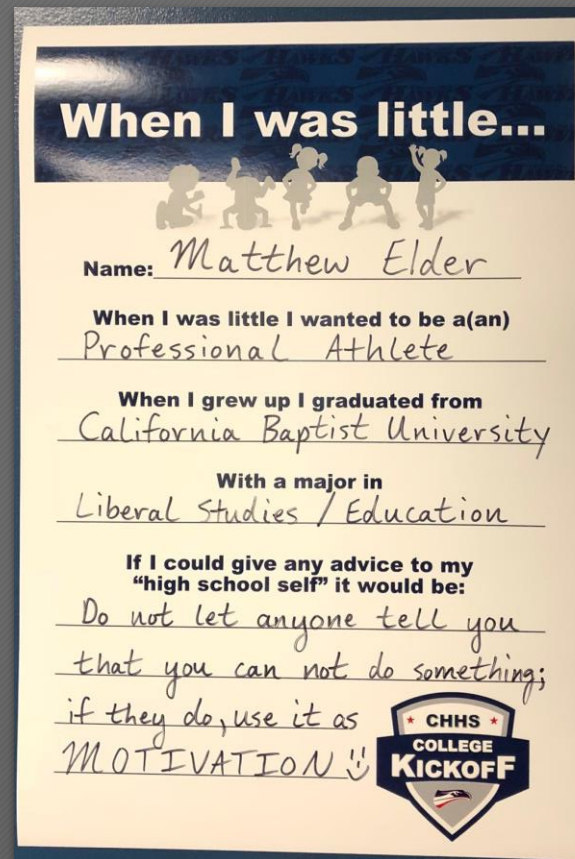 When I was little...
Name: Matthew Elder
When I was little I wanted to be a(an)
Professional Athlete
When I grew up I graduated from
California Baptist University
With a major in
Liberal Studies / Education
If I could give any advice to my
"high school self" it would be:
Do not let anyone tell you
that you can not do something;
if they do, use it as
MOTIVATION
CHHS
COLLEGE
KICKOFF